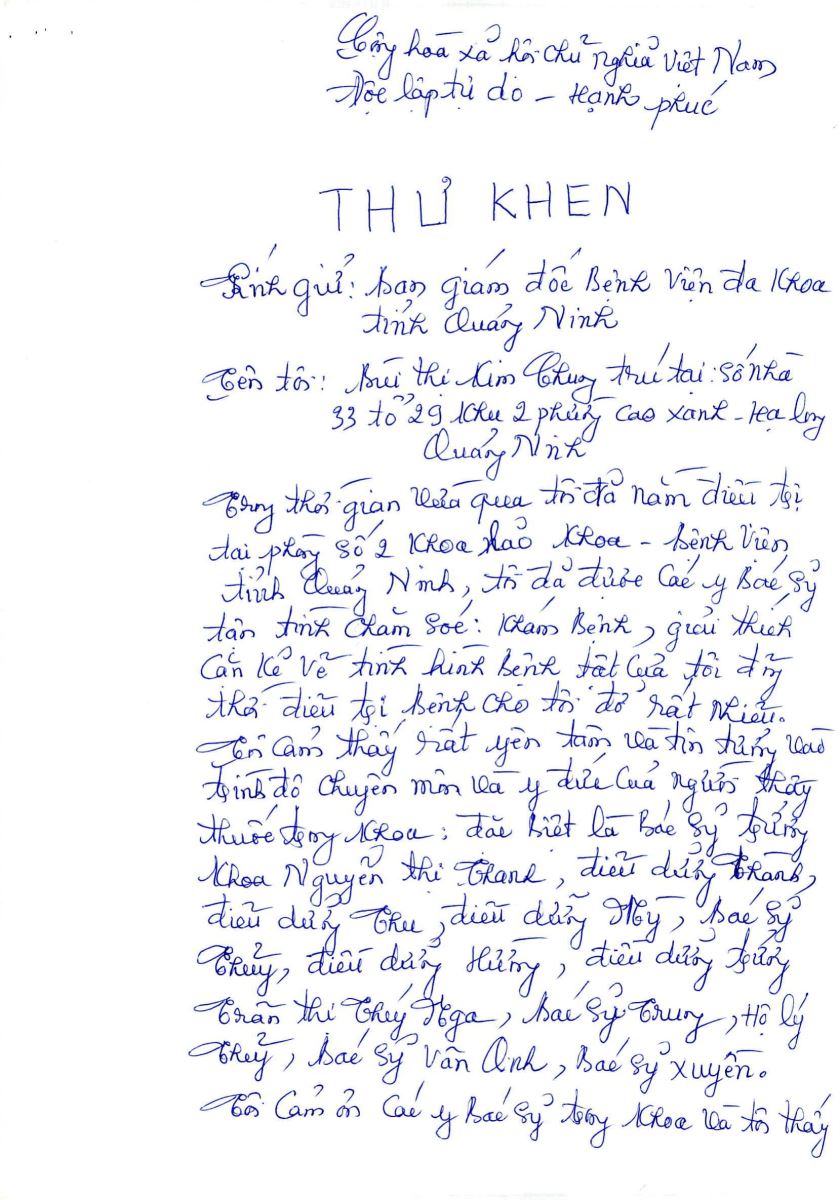 Cộng hoà xả hội chủ nghiả Việt Nam
Độc lập tự do - Hạnh phúc
THƯ KHEN
Kính gửi: Ban giám đốc Bệnh Viện đa Khoa
tỉnh Quảng Ninh
Tên tôi: Bùi thị Kim Chung trú tại: Số nhà
33 tổ 29 Khu 2 phường cao xanh - Hạ long
Quảng Ninh
Trong thời gian vừa qua tôi đả nằm điều trị
tại phòng số 2 Khoa Lảo Khoa - Bệnh Viện
tỉnh Quảng Ninh, tôi đả được Các y Bác Sỷ
tận tình Chăm Sóc: Khám Bệnh, giải thích
Cặn Kẻ Về tình hình Bệnh tật Của tôi đồng
thời điều trị Bệnh cho tôi đở rất Nhiều.
Tôi Cảm thấy rất yên tâm Và tin tưởng Vào
trình độ Chuyên môn Và y đức Của người thầy
thuốc trong Khoa: đặc Biệt là Bác Sỷ trưởng
Khoa Nguyễn thị Thanh, điều dưởng Thành,
điều dưởng Thu, điều dưởng Mỳ, Bác Sỷ
Thuỷ, điều dưởng Hường, điều dưởng trưởng
Trần thị Thuý Nga, Bác Sỷ Trung, Hộ lý
Thuỷ, Bác Sỷ Vân Anh, Bác Sỷ xuyền.
Tôi Cảm ơn Các y Bác Sỷ trong Khoa Và tôi thấy